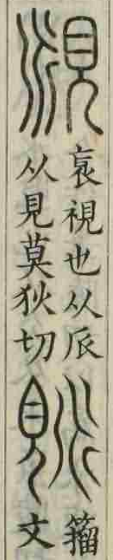 覛
衺視也从𠂢
从見莫狄切
籒
文